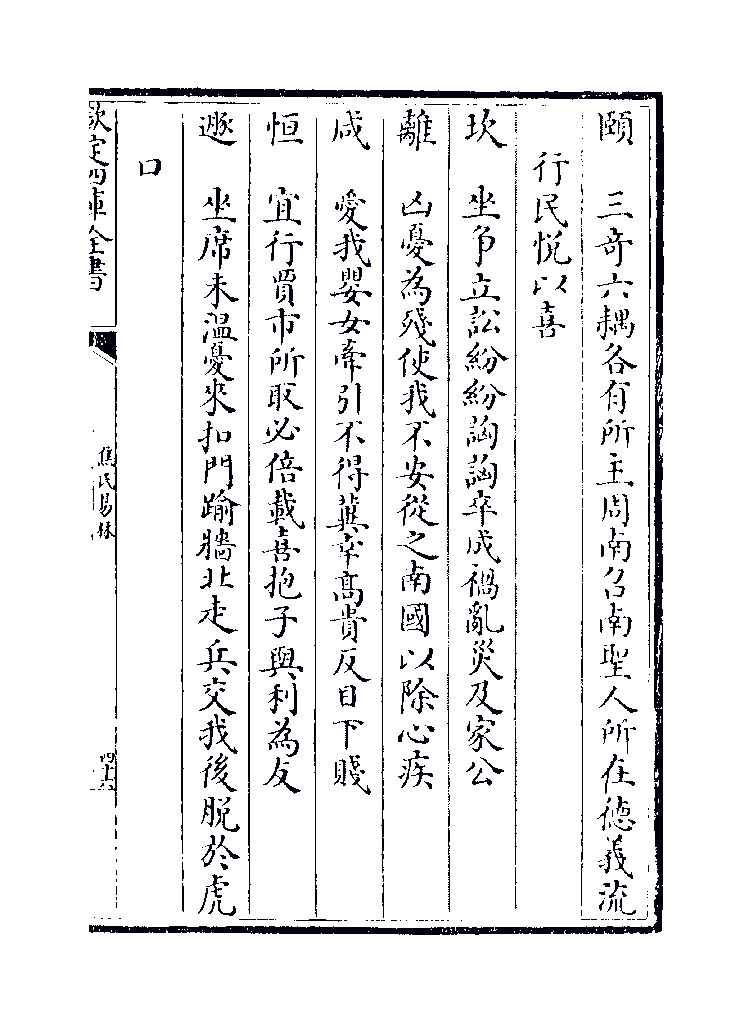 頤　三奇六耦各有所主周南召南聖人所在德義流
行民悅以喜
坎　坐爭立訟紛紛訩訩卒成禍亂災及家公
離　凶憂為殘使我不安從之南國以除心疾
咸　愛我嬰女牽引不得冀幸高貴反目下賤
恒　宜行賈市所取必倍載喜抱子與利為友
遯　坐席未溫憂來扣門踰牆北走兵交我後脫於虎
口
欽定四庫全書
焦氏易林
四十六